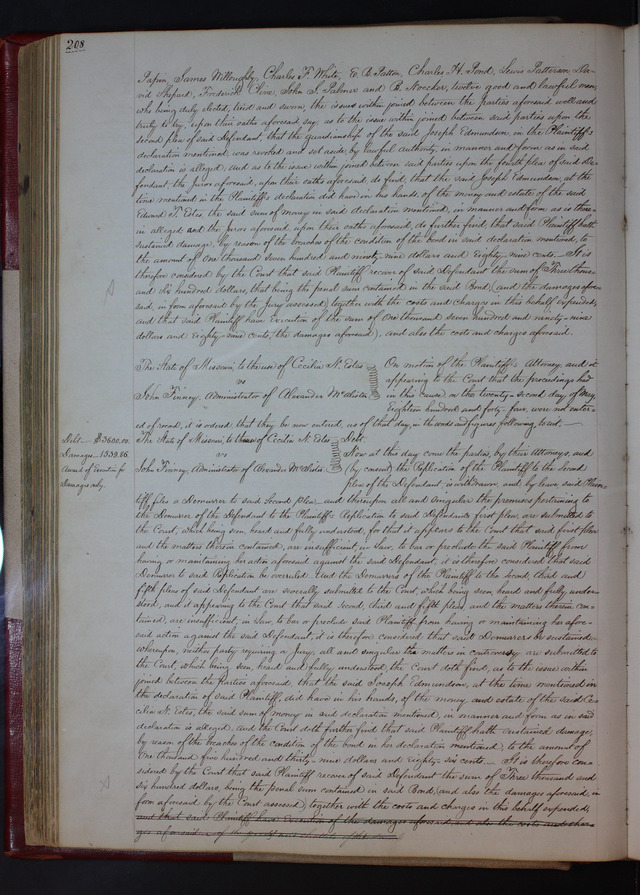 208
Papin, James Willoughby, Charles F. White, E. B. Patton, Charles H. Pond, Lewis Patterson, Da-
vid Shepard, Frederick Kline, John S. Palmer and B. Noecker, twelve good and lawful men,
who being duly elected, tried and sworn, the issues within joined between the parties aforesaid well and
truly to try, upon their oaths aforesaid say, as to the issue within joined between said parties upon the
second plea of said Defendant, that the guardianship of the said Joseph Edmundson, in the Plaintiff's
declaration mentioned, was revoked and set aside, by lawful authority, in manner and form as in said
declaration is alleged; and as to the issue within joined between said parties upon the fourth plea of said De-
fendant, the Jurors aforesaid, upon their oaths aforesaid, do find, that the said Joseph Edmundson, at the
time mentioned in the Plaintiff's declaration did have in his hands, of the money and estate of the said
Edward T. Estes, the said sum of money in said declaration mentioned, in manner and form as is there-
in alleged and the Jurors aforesaid, upon their oaths aforesaid, do further find, that said Plaintiff hath
sustained damage, by reason of the breaches of the condition of the bond in said declaration mentioned, to
the amount of One thousand seven hundred and ninety-nine dollars and Eighty-nine cents. It is
therefore considered by the Court that said Plaintiff recover of said Defendant the sum of Three thous-
and six hundred dollars, that being the penal sum contained in the said Bond, (and the damages afore-
said, in form aforesaid by the Jury assessed,) together with the costs and charges in this behalf expended;
and that said Plaintiff have Execution of the sum of One thousand seven hundred and ninety-nine
dollars and Eighty-nine cents, (the damages aforesaid), and also the costs and charges aforesaid.
The State of Missouri to the use of Cecilia N. Estes
vs
John Finney, Administrator of Alexander McAlister
On motion of the Plaintiff's Attorney, and it
appearing to the Court that the proceedings had
in this cause, on the twenty-second day of May
Eighteen hundred and forty-four, were not enter-
ed of record, it is ordered that they be now entered, as of that day, in the words and figures following to wit:
Debt $3600.00
Damages 1539.86
Award of Execution for
Damages only.
The State of Missouri, to the use of Cecilia N. Estes
vs
John Finney, Administrator of Alexander McAlister
Debt.
Now at this day come the parties, by their Attorneys, and
(by consent) the Replication of the Plaintiff to the second
plea of the Defendant, is withdrawn, and by leave said Plain-
tiff files a Demurrer to said second plea and thereupon all and singular the premises pertaining to
the Demurrer of the Defendant to the Plaintiff's Replication to said Defendant's first plea, are submitted to
the Court, which being seen, heard and fully understood, for that it appears to the Court that said first plea
and the matters therein contained, are insufficient, in law, to bar or preclude the said Plaintiff from
having or maintaining her action aforesaid against the said Defendant; it is therefore considered that said
Demurrer to said Replication be overruled. And the Demurrers of the Plaintiff to the second, third and
fifth pleas of said Defendant are severally submitted to the Court, which being seen, heard and fully under-
stood, and it appearing to the Court that said second, third and fifth pleas, and the matters therein con-
tained, are insufficient, in law, to bar or preclude said Plaintiff from having or maintaining her afore-
said action against the said Defendant, it is therefore considered that said Demurrers be sustained—
whereupon, neither party requiring a Jury, all and singular the matters in controversy are submitted to
the Court, which being seen, heard and fully understood, the Court doth find, as to the issue within
joined between the Parties aforesaid, that the said Joseph Edmundson, at the time mentioned in
the declaration of said Plaintiff, did have in his hands, of the money and estate of the said Ce-
cilia N. Estes, the said sum of money in said declaration mentioned, in manner and form as in said
declaration is alleged; and the Court doth further find that said Plaintiff hath sustained damage,
by reason of the breaches of the condition of the bond in her declaration mentioned, to the amount of
One thousand five hundred and thirty-nine dollars and Eighty-six cents. It is therefore con-
sidered by the Court that said Plaintiff recover of said Defendant the sum of Three thousand and
six hundred dollars, being the penal sum contained in said Bond, (and also the damages aforesaid, in
form aforesaid by the Court assessed,) together with the costs and charges in this behalf expended;
and that said Plaintiff have Execution of the damages aforesaid, and also the costs and char-
ges aforesaid